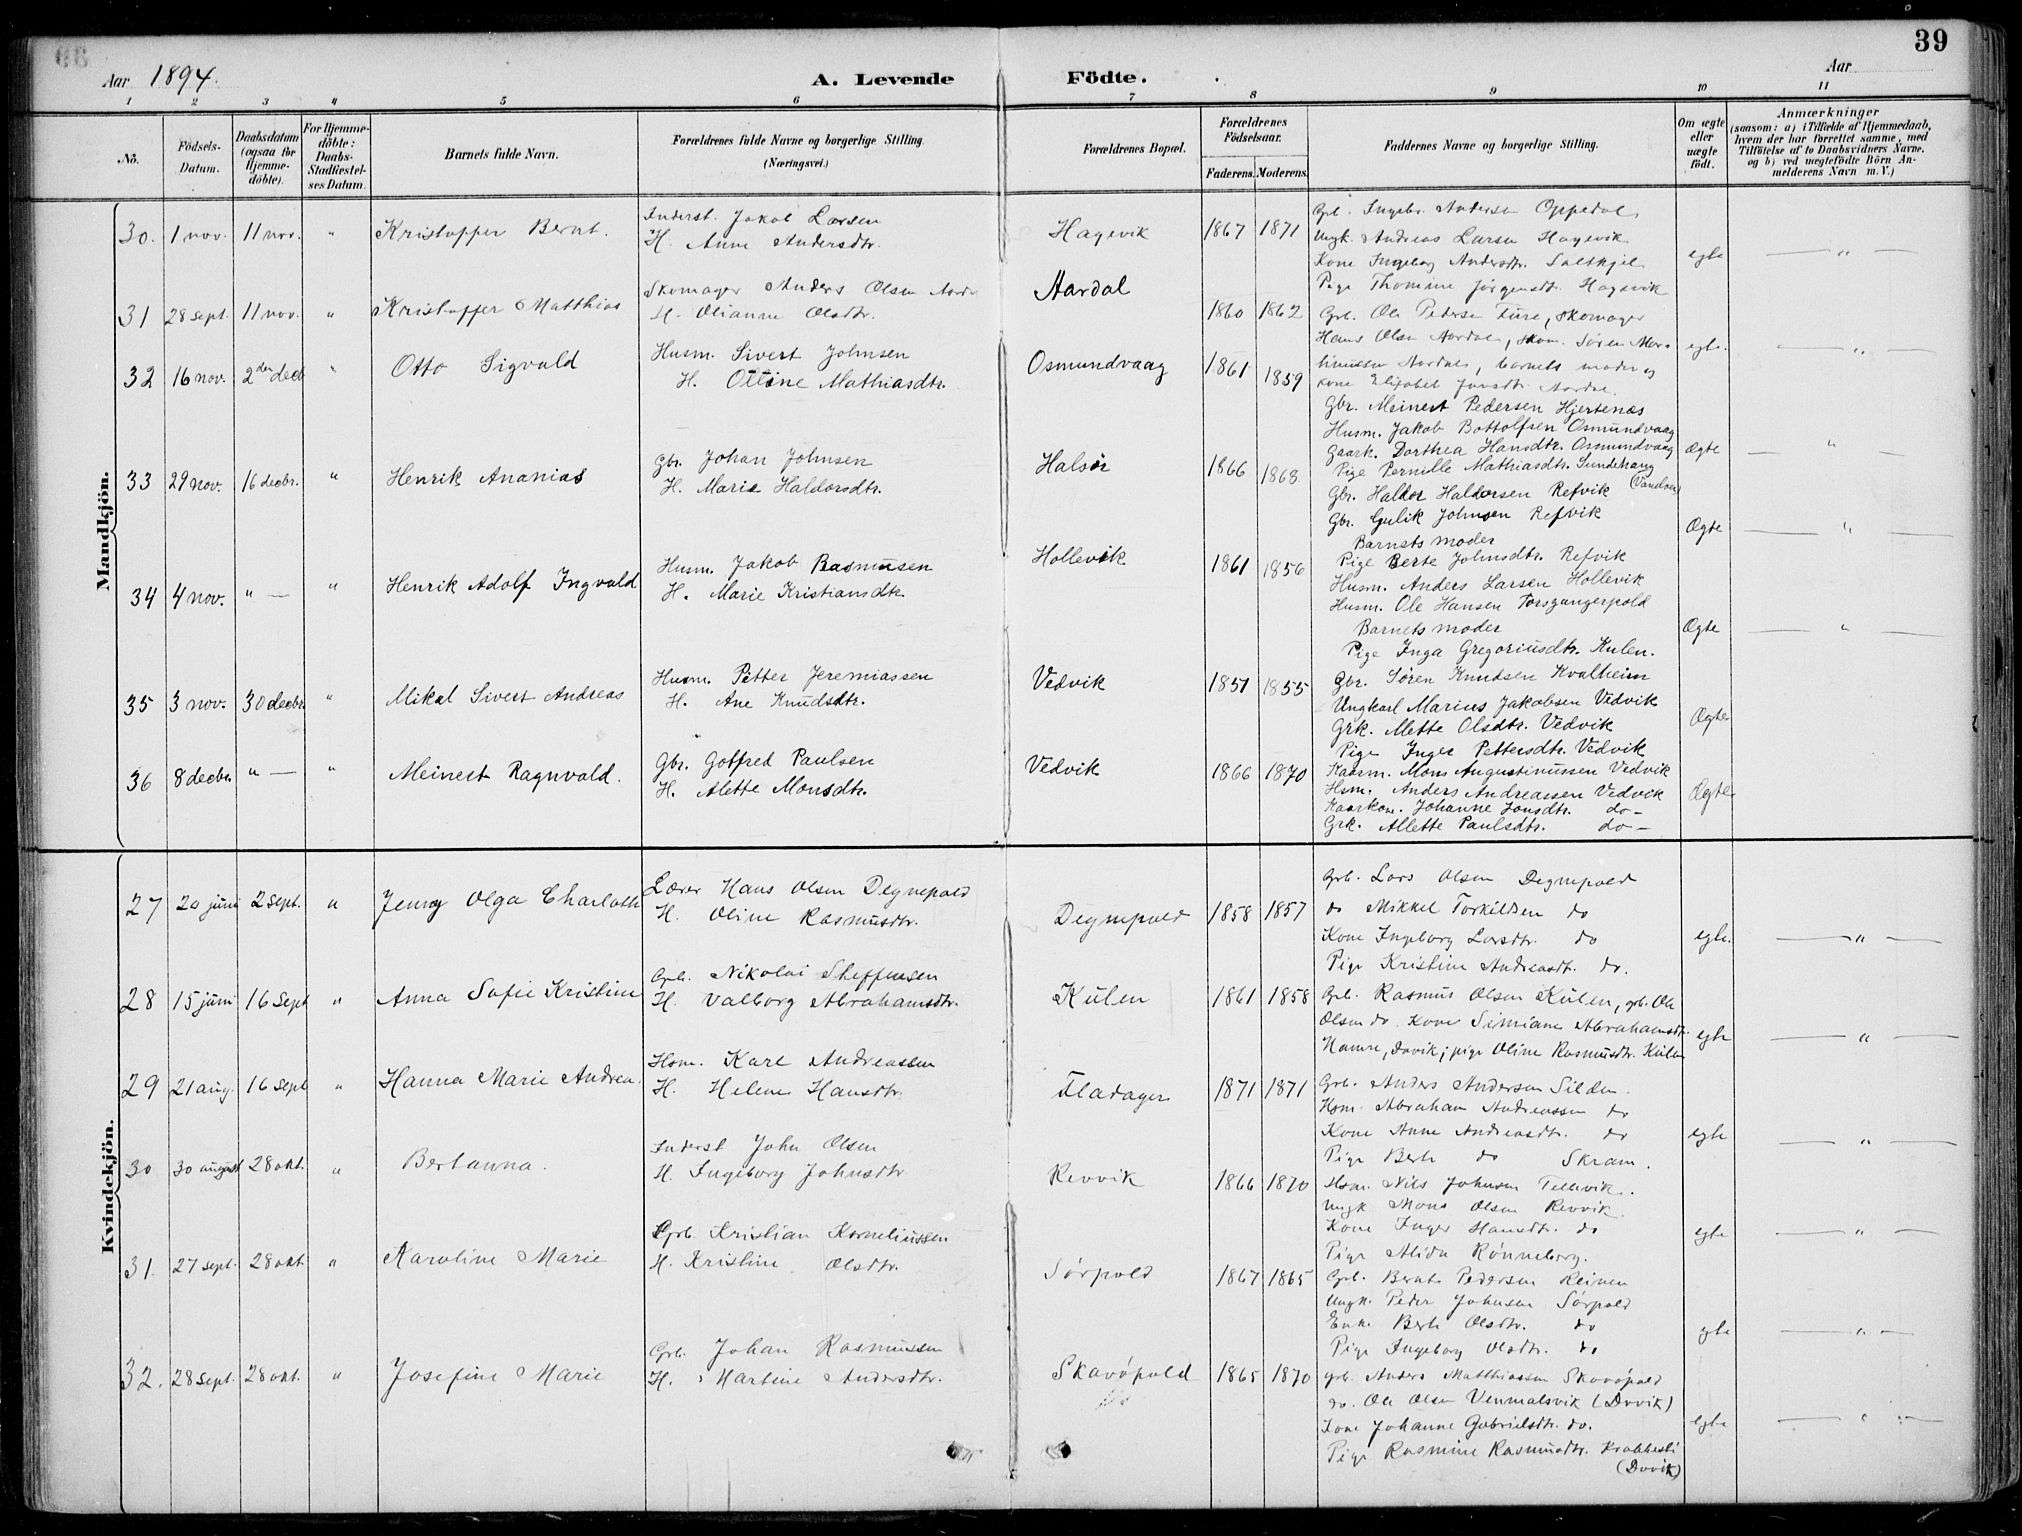 39
Aar 1894.
A. Levende Födte.
Aar
1 2 3 4 5 6 7 8 9 10 11
No.
Födsels-Datum.
Daabsdatum (ogsaa for Hjemme-döbte).
For Hjemme-döbte: Daabs-Stadfæstel-ses Datum.
Barnets fulde Navn.
Forældrenes fulde Navne og borgerlige Stilling. (Næringsvei.)
Forældrenes Bopæl.
Forældrenes Födselsaar.
Faderens. Moderens.
Faddernes Navne og borgerlige Stilling.
Om ægte eller uægte født.
Anmærkninger
(saasom: a) i Tilfælde af Hjemmedaab,
hvem der har forrettet samme, med
Tilföielse af to Daabsvidners Navne,
og b) ved uægtefödte Börn An-
melderens Navn m. V.)
Mandkjön.
30. 1 nov. 11 nov. " Kristoffer Bernt.
Inderst. Jakob Larsen
H. Anne Andersdtr.
Hagevik 1867 1871
Grb. Ingebr. Andersen Oppedal
Ungk. Andreas Larsen Hagevik
Kone Ingeborg Andersdtr. Saltkjel
Pige Thomine Jørgensdtr. Hagevik
egte "
31 28 sept. 11 nov. " Kristoffer Matthias
Skomager Anders Olsen Aardal
H. Olianne Olsdtr.
Aardal 1860 1862
Grb. Ole Pedersen Fure, skomager
Hans Olsen Aardal, skom. Søren Mar-
tinussen Aardal, barnets moder og
kone Elisabet Jonsdtr. Aardal
egte. "
32 16 nov. 2den decb " Otto Sigvald
Husm. Sivert Johnsen
H. Ottine Mathiasdtr.
Osmundvaag 1861 1859
Gbr. Meinert Pedersen Hjertenæs
Husm. Jakob Bottolfsen Osmundvaag
Gaark. Dorthea Hansdtr. Osmundvaag
Pige Pernille Mathiasdtr. Sundehaug
Ægte "
33 29 nov. 16 decbr. " Henrik Ananias
Gbr. Johan Johnsen
H. Marie Haldorsdtr.
Halsør 1866 1868
Gbr. Haldor Haldorsen Refvik
Gbr. Gulik Johnsen Refvik
Barnets moder
Pige Berte Johnsdtr. Refvik
Ægte "
34 4 nov. " — " Henrik Adolf Ingvald
Husm. Jakob Rasmusen
H. Marie Kristiansdtr.
Hollevik 1861 1856
Husm. Anders Larsen Hollevik
Husm. Ole Hansen Torsgangerpold
Barnets moder
Pige Inga Gregoriusdtr. Kulen.
Ægte "
35 3 nov. 30 decbr. " Mikal Sivert Andreas
Husm. Petter Jeremiassen
H. Ane Knudsdtr.
Vedvik 1851 1855
Gbr. Søren Knudsen Kvalheim
Ungkarl Marius Jakobsen Vedvik
Grk. Mette Olsdtr. Vedvik
Pige Inger Pettersdtr. Vedvik
Ægte
36 8 decbr. " — " Meinert Ragnvald.
Gbr. Gotfred Paulsen
H. Alette Monsdtr.
Vedvik 1866 1870
Kaarm. Mons Augustinussen Vedvik
Hsm. Anders Andreassen Vedvik
Kaarkone. Johanne Jonsdtr. do -
Grk. Allette Paulsdtr. do -
Ægte
Kvindekjön.
27 20 juni 2 sept. " Jenny Olga Charlotte
Lærer Hans Olsen Degnepold
H. Oline Rasmusdtr.
Degnepold 1858 1857
Grb. Lars Olsen Degnepold
do Mikkel Torkildsen do
Kone Ingeborg Larsdtr. do
Pige Kristine Andreasdt. do.
egte. "
28 15 juni 16 sept " Anna Sofie Kristine
Grb. Nikolai Steffensen
H. Valborg Abrahamsdtr.
Kulen 1861 1858
Grb. Rasmus Olsen Kulen, grb. Ole
Olsen do. Kone Simiane Abrahamsdtr.
Hamre, Davik; pige Oline Rasmusdtr. Kulen
egte "
29 21 aug. 16 sept " Hanna Marie Andrea.
Hsm. Karl Andreassen
H. Helene Hansdtr.
Fladager 1871 1871
Grb. Anders Andersen Silden.
Hsm. Abraham Andreassen do
Kone Anne Andreasdt. do
Pige Berte do Skram.
egte "
30 30 august 28 okt. " Bertanna.
Inderst John Olsen
H. Ingeborg Johnsdtr
Revvik 1866 1870
Hsm. Nils Johnsen Tellevik.
Ungk Mons Olsen Revvik.
Kone Inger Hansdtr. do
Pige Alida Rønneberg.
egte "
31. 27 sept. 28 okt. " Karoline Marie
Grb. Kristian Korneliussen
H. Kristine Olsdtr.
Sørpold 1867 1865
Grb. Bernt Pedersen Reinen
Ungk. Peder Johnsen Sørpold
Enke Berte Olsdtr. do
Pige Ingeborg Olsdtr. do
egte "
32. 28 sept. 28 okt. " Josefine Marie
Grb. Johan Rasmussen
H. Martine Andersdtr.
Skavøpold 1865 1870
grb. Anders Matthiassen Skavøpold
do. Ole Olsen Venmalsvik (Davik)
Kone Johanne Gabrielsdtr. do.
Pige Rasmine Rasmusdtr. Krabbesti
(Davik)
egte "